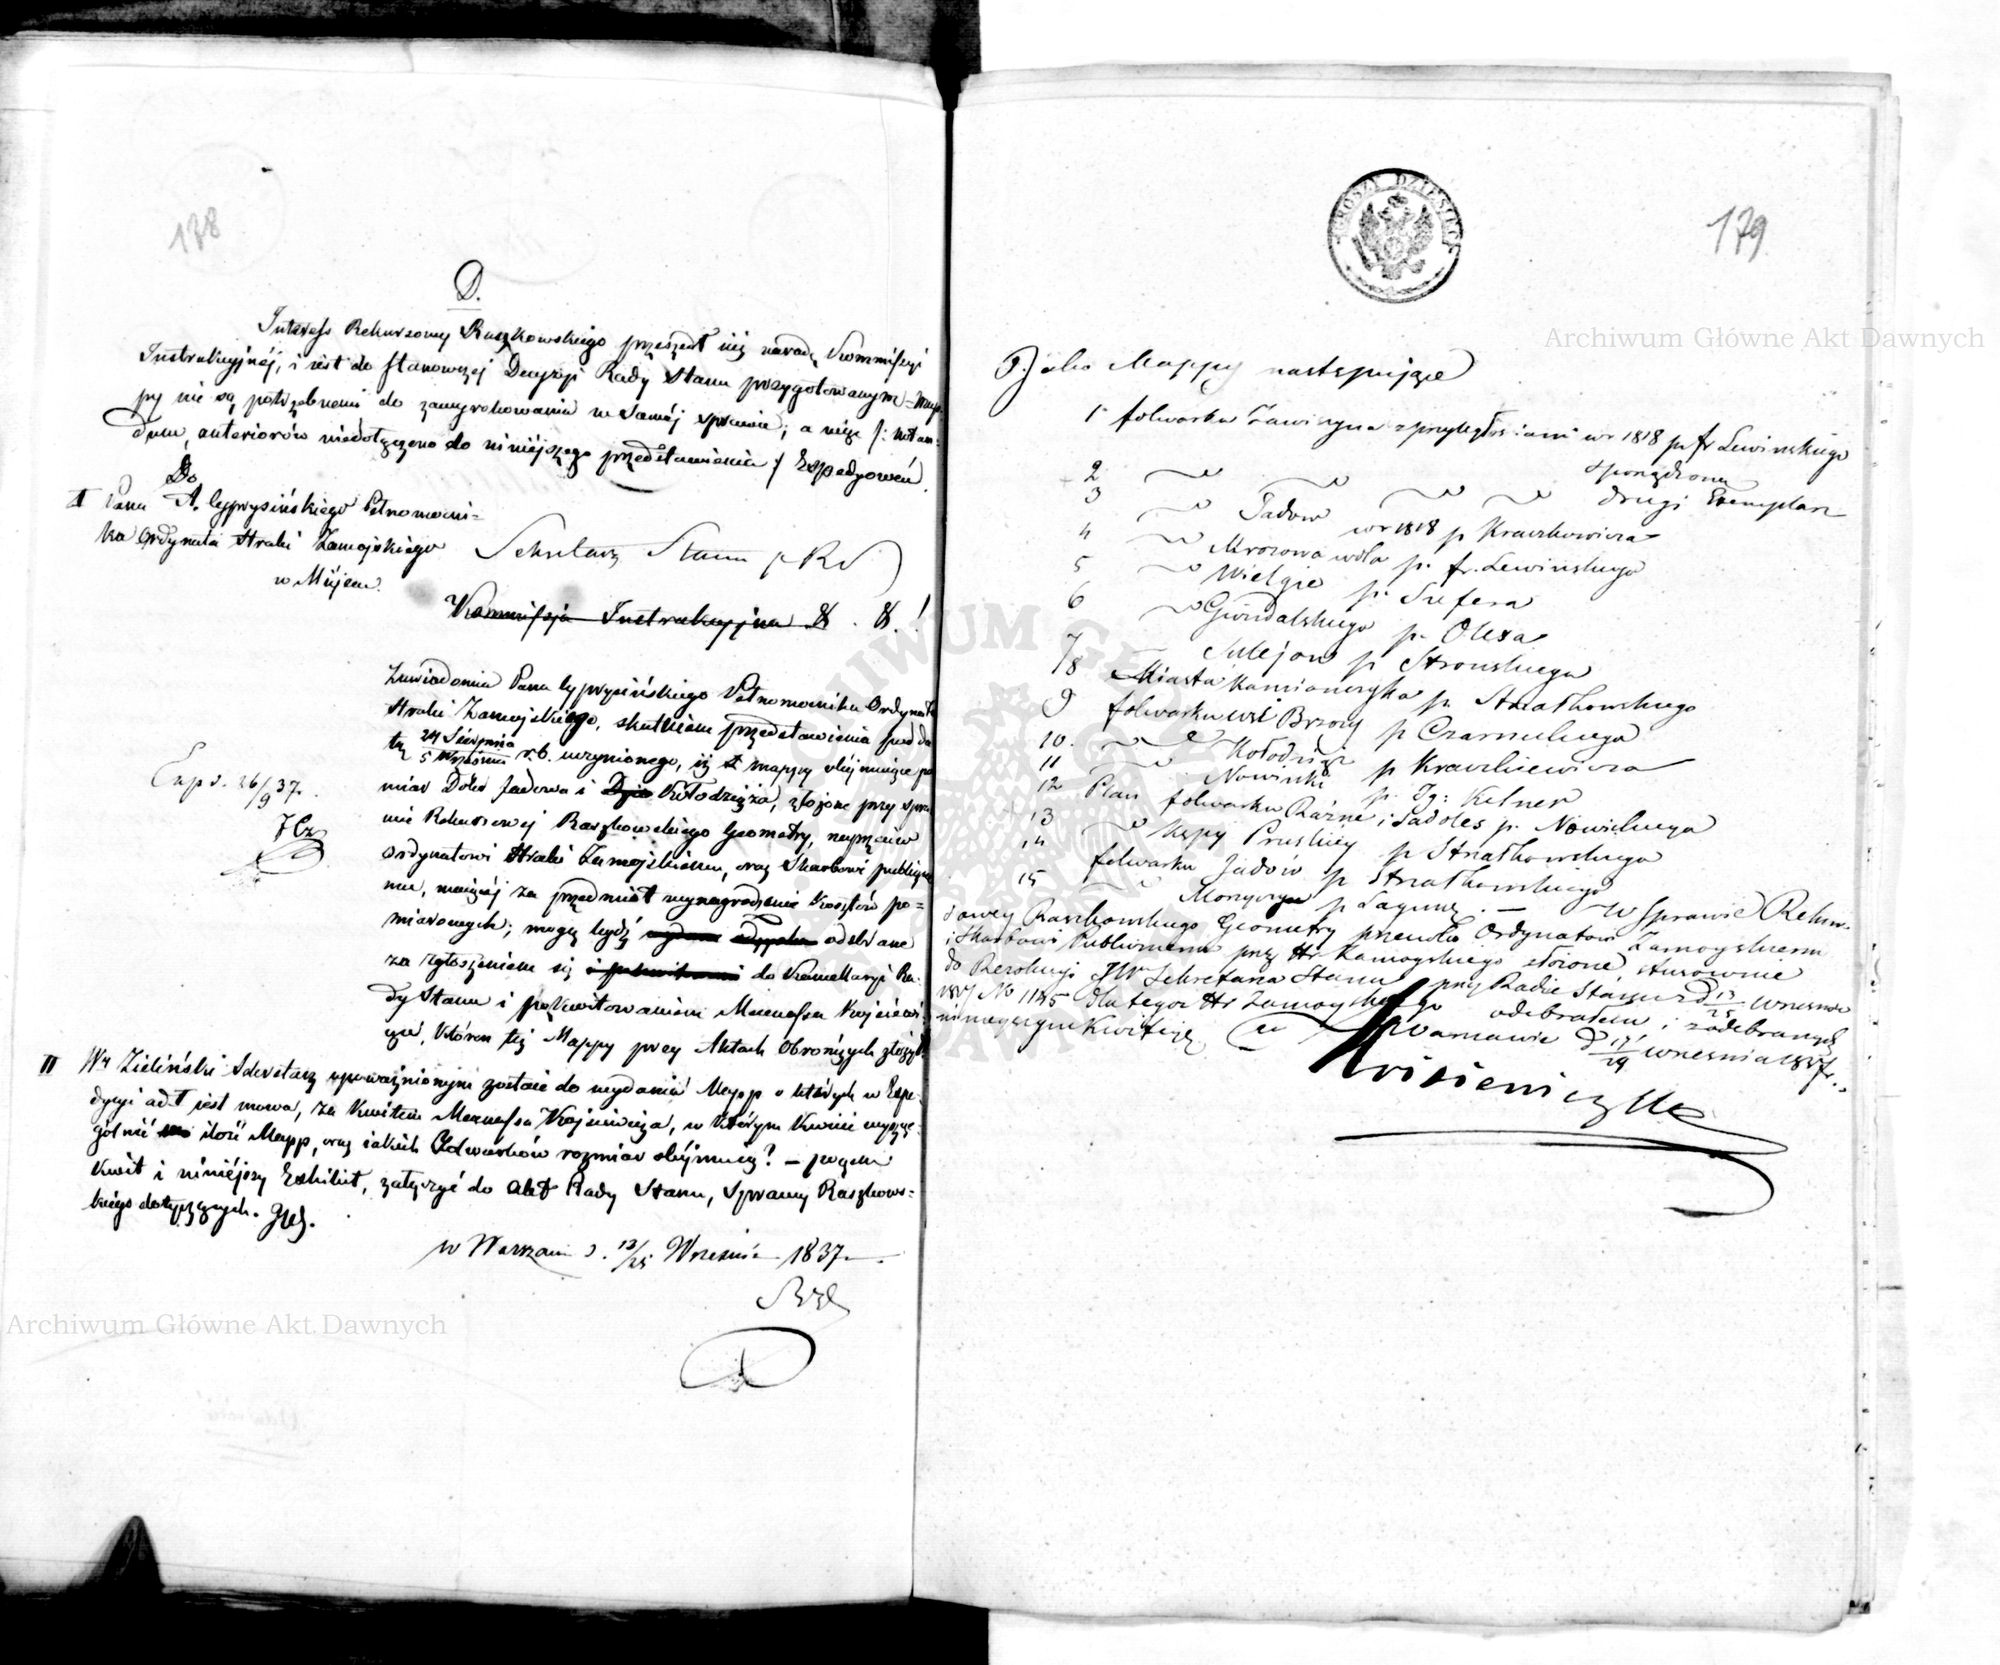 178
D.
Interess Rekursowy Raszkowskiego przeszedł iuż naradę Kommissyi
Instrukcyjnéj, i iest do stanowczej Decyzji Rady Stanu przygotowanym – map-
py nie są potrzebnemi do zawyrokowania w saméj sprawie; a więc /: notan-
dum, anteriorów niedołączono do niniejszego przedstawienia :/ Expedyować.
Do
I Pana A. Cyprysińskiego Pełnomocni=
ka Ordynata Hrabi Zamojskiego
w Miéjscu.
Sekretarz Stanu p RS
Kommissja Instrukcyjna & . & . !
Zawiadomia Pana Cyprysińskiego Pełnomocnika Ordynata
Hrabi Zamojskiego, skutkiem przedstawienia pod da-
tą 24 Sierpnia / 5 Września r. b. uczynionego, iż mappy obéjmuiące po
miar Dóbr Jadowa i Kołodziąża, złożone przy spra-
wie Rekursowej Raszkowskiego Geometry, naprzeciw
Ordynatowi Hrabi Zamojskiemu, oraz Skarbowi publicz-
nemu, maiącéj za przedmiot wynagrodzenie kosztów po=
miarowych; mogą bydź odebrane
za zgłoszeniem się do Kancellaryi Ra-
dy Stanu i pokwitowaniem Mecenasa Krysiewi-
cza, który też Mappy przy Aktach Obrończych złożył.
Exp d. 26/9 37.
II Wy Zieliński Sekretarz upoważnionym zostaie do wydania Mapp o których w Expe-
dycyi ad I iest mowa, za kwitem Mecenasa Krysiewicza, w którym kwicie wyszcze-
gólnić ilość Mapp, oraz iakich Folwarków rozmiar obéjmuią? – poczem
kwit i niniéjszy Exhibit, załączyć do akt Rady Stanu, Sprawy Raszkows=
kiego dotyczących.
w Warszawie d. 13/25 Września 1837
GROSZY DZIESIĘĆ
179
Jako Mappy następujące
1 folwarku Zawiszyna z przyległościami w r 1818 p. fr Lewińskiego
sporządzona
2 drugi Exemplarz
3 Jadow w r 1818 p Kraszkowicza
4 Mrozowa wola p. fr. Lewińskiego
5 Wielgie p. Sufera
6 Gwizdalskiego p. Olexa
7 Sulejow p Stronskiego
8 Miasta Kamionczyka p. Strzałkowskiego
9 folwarku wsi Brzozy p Czarneckiego
10. Kołodziąż p Kraszkiewicza
11 Nowinki p. Ig: Kelner
12 Plan folwarku Rażne i Sadoles p. Nowickiego
13 Kępy Pruskiey p Strzałkowskiego
14 folwarku Jadów p Strzałkowskiego
15 p Lagunę. — W Sprawie Rekur-
sowey Raszkowskiego Geometry przeciwko Ordynatowi Zamoyskiemu
i Skarbowi Publicznemu przez Hr Zamoyskiego złożone, stosownie
do Rezolucyi JW Sekretarza Stanu przy Radzie Stanu z d 13/25 wrzesnia
1837 No 1145 dla tegoż Hr Zamoyskiego odebrałem i z odebranych
ninieyszym kwituję w Warszawie d 17/29 wrzesnia 1837 r.